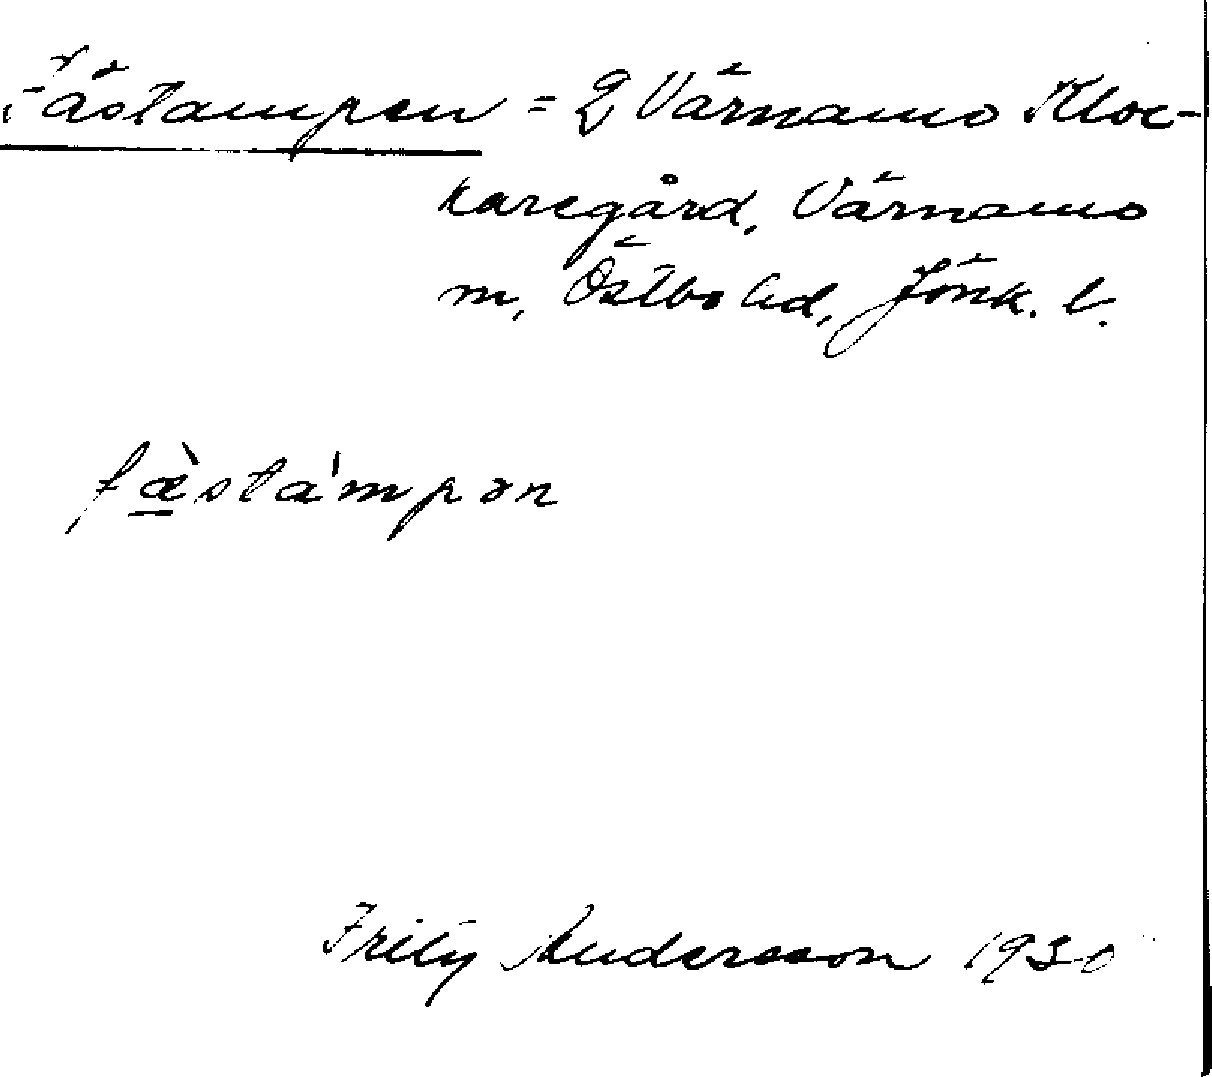 Fästampen = 2 Värnamo Kloc-
karegård, Värnamo
m, Östbo hd, Jönk. l.
fæ̀stámpən
Fritz Andersson 1930